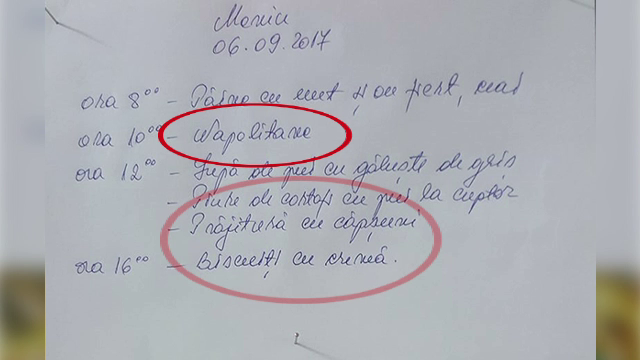 Meniu
06.09.2017
ora 8⁰⁰ – Pâine cu unt și ou fiert, ceai
ora 10⁰⁰ – Napolitane
ora 12⁰⁰ – Supă de pui cu găluște de griș
– Piure de cartofi cu pui la cuptor
– Prăjitură cu căpșuni
ora 16⁰⁰ – Biscuiți cu cremă.